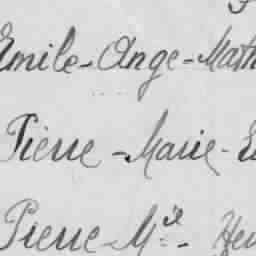 Emile-Ange-Math
Pierre-Marie-E
Pierre-M.ie-Hen